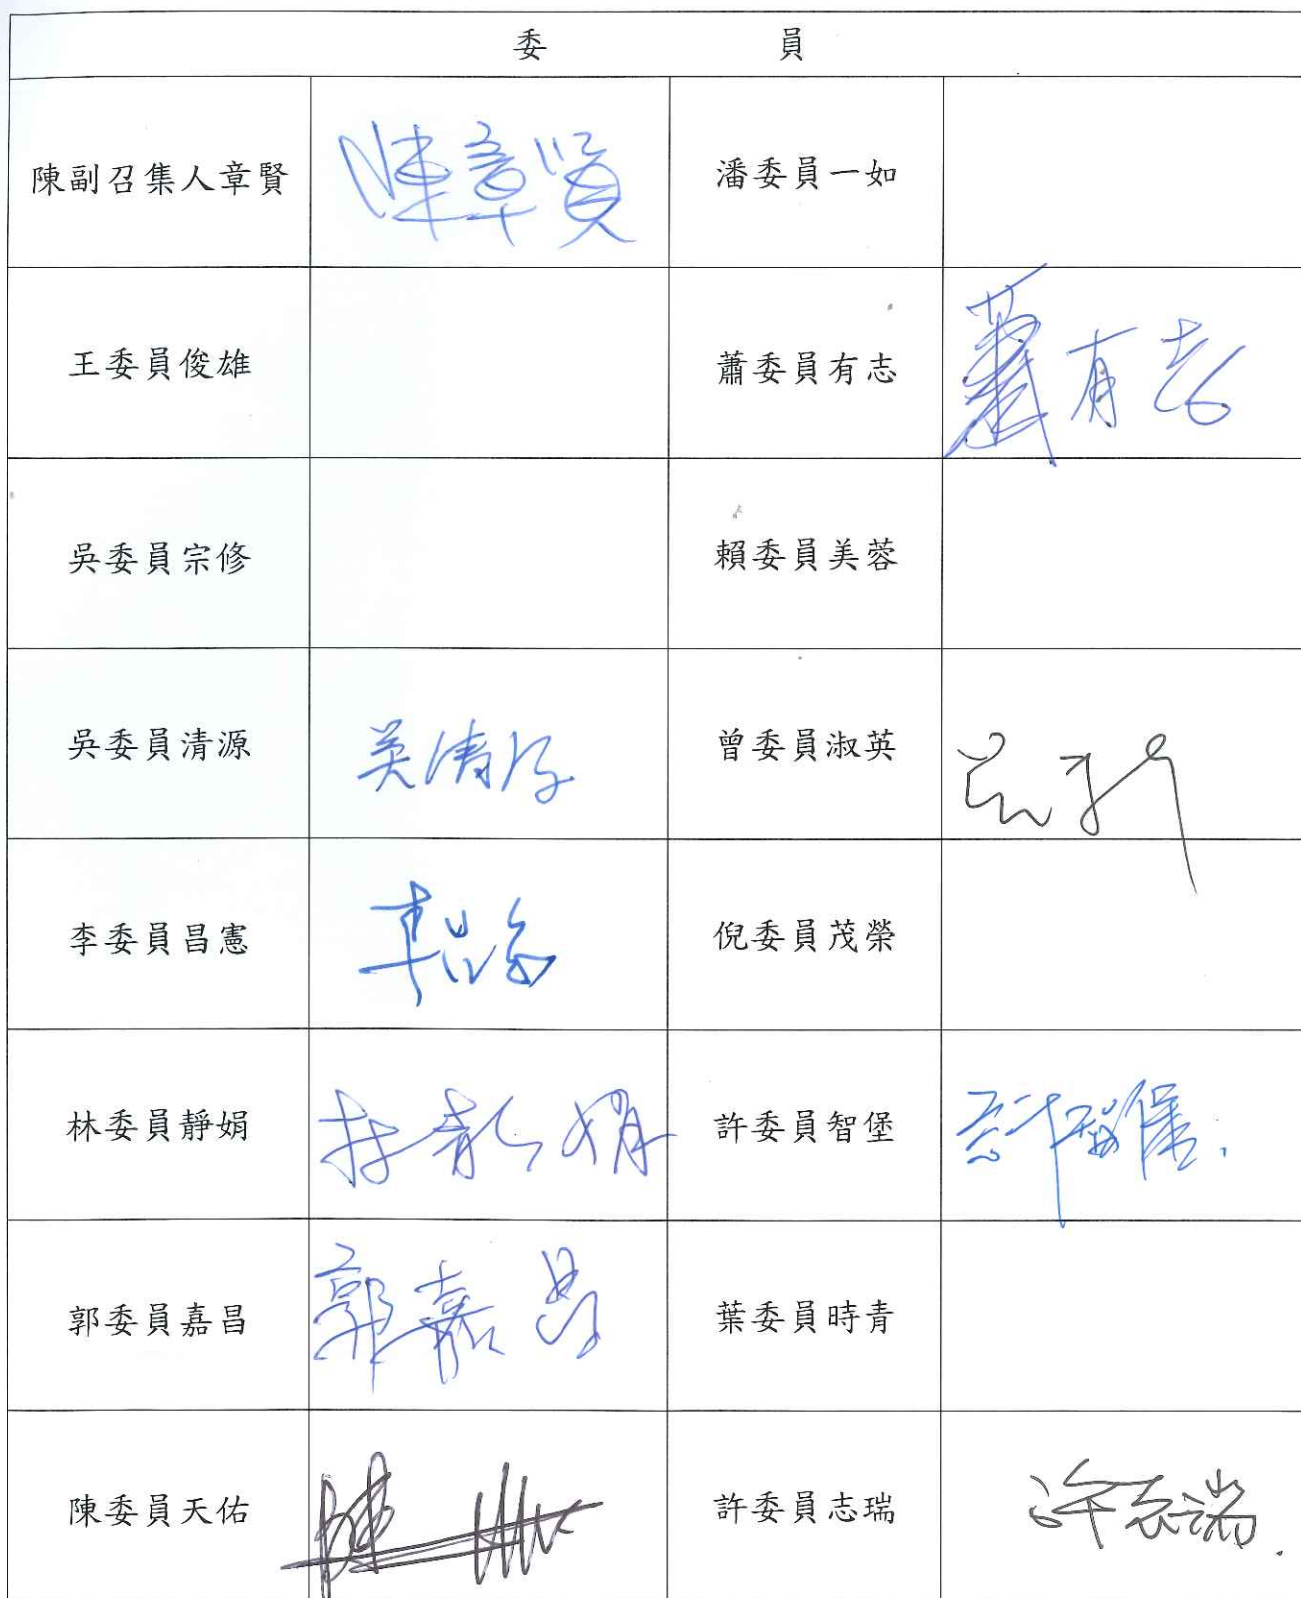 委員
陳副召集人章賢 陳章賢 潘委員一如
王委員俊雄 蕭委員有志 蕭有志
吳委員宗修 賴委員美蓉
吳委員清源 吳清源 曾委員淑英
李委員昌憲 李昌憲 倪委員茂榮
林委員靜娟 林靜娟 許委員智堡 許智堡
郭委員嘉昌 郭嘉昌 葉委員時青
陳委員天佑 陳 許委員志瑞 許志瑞